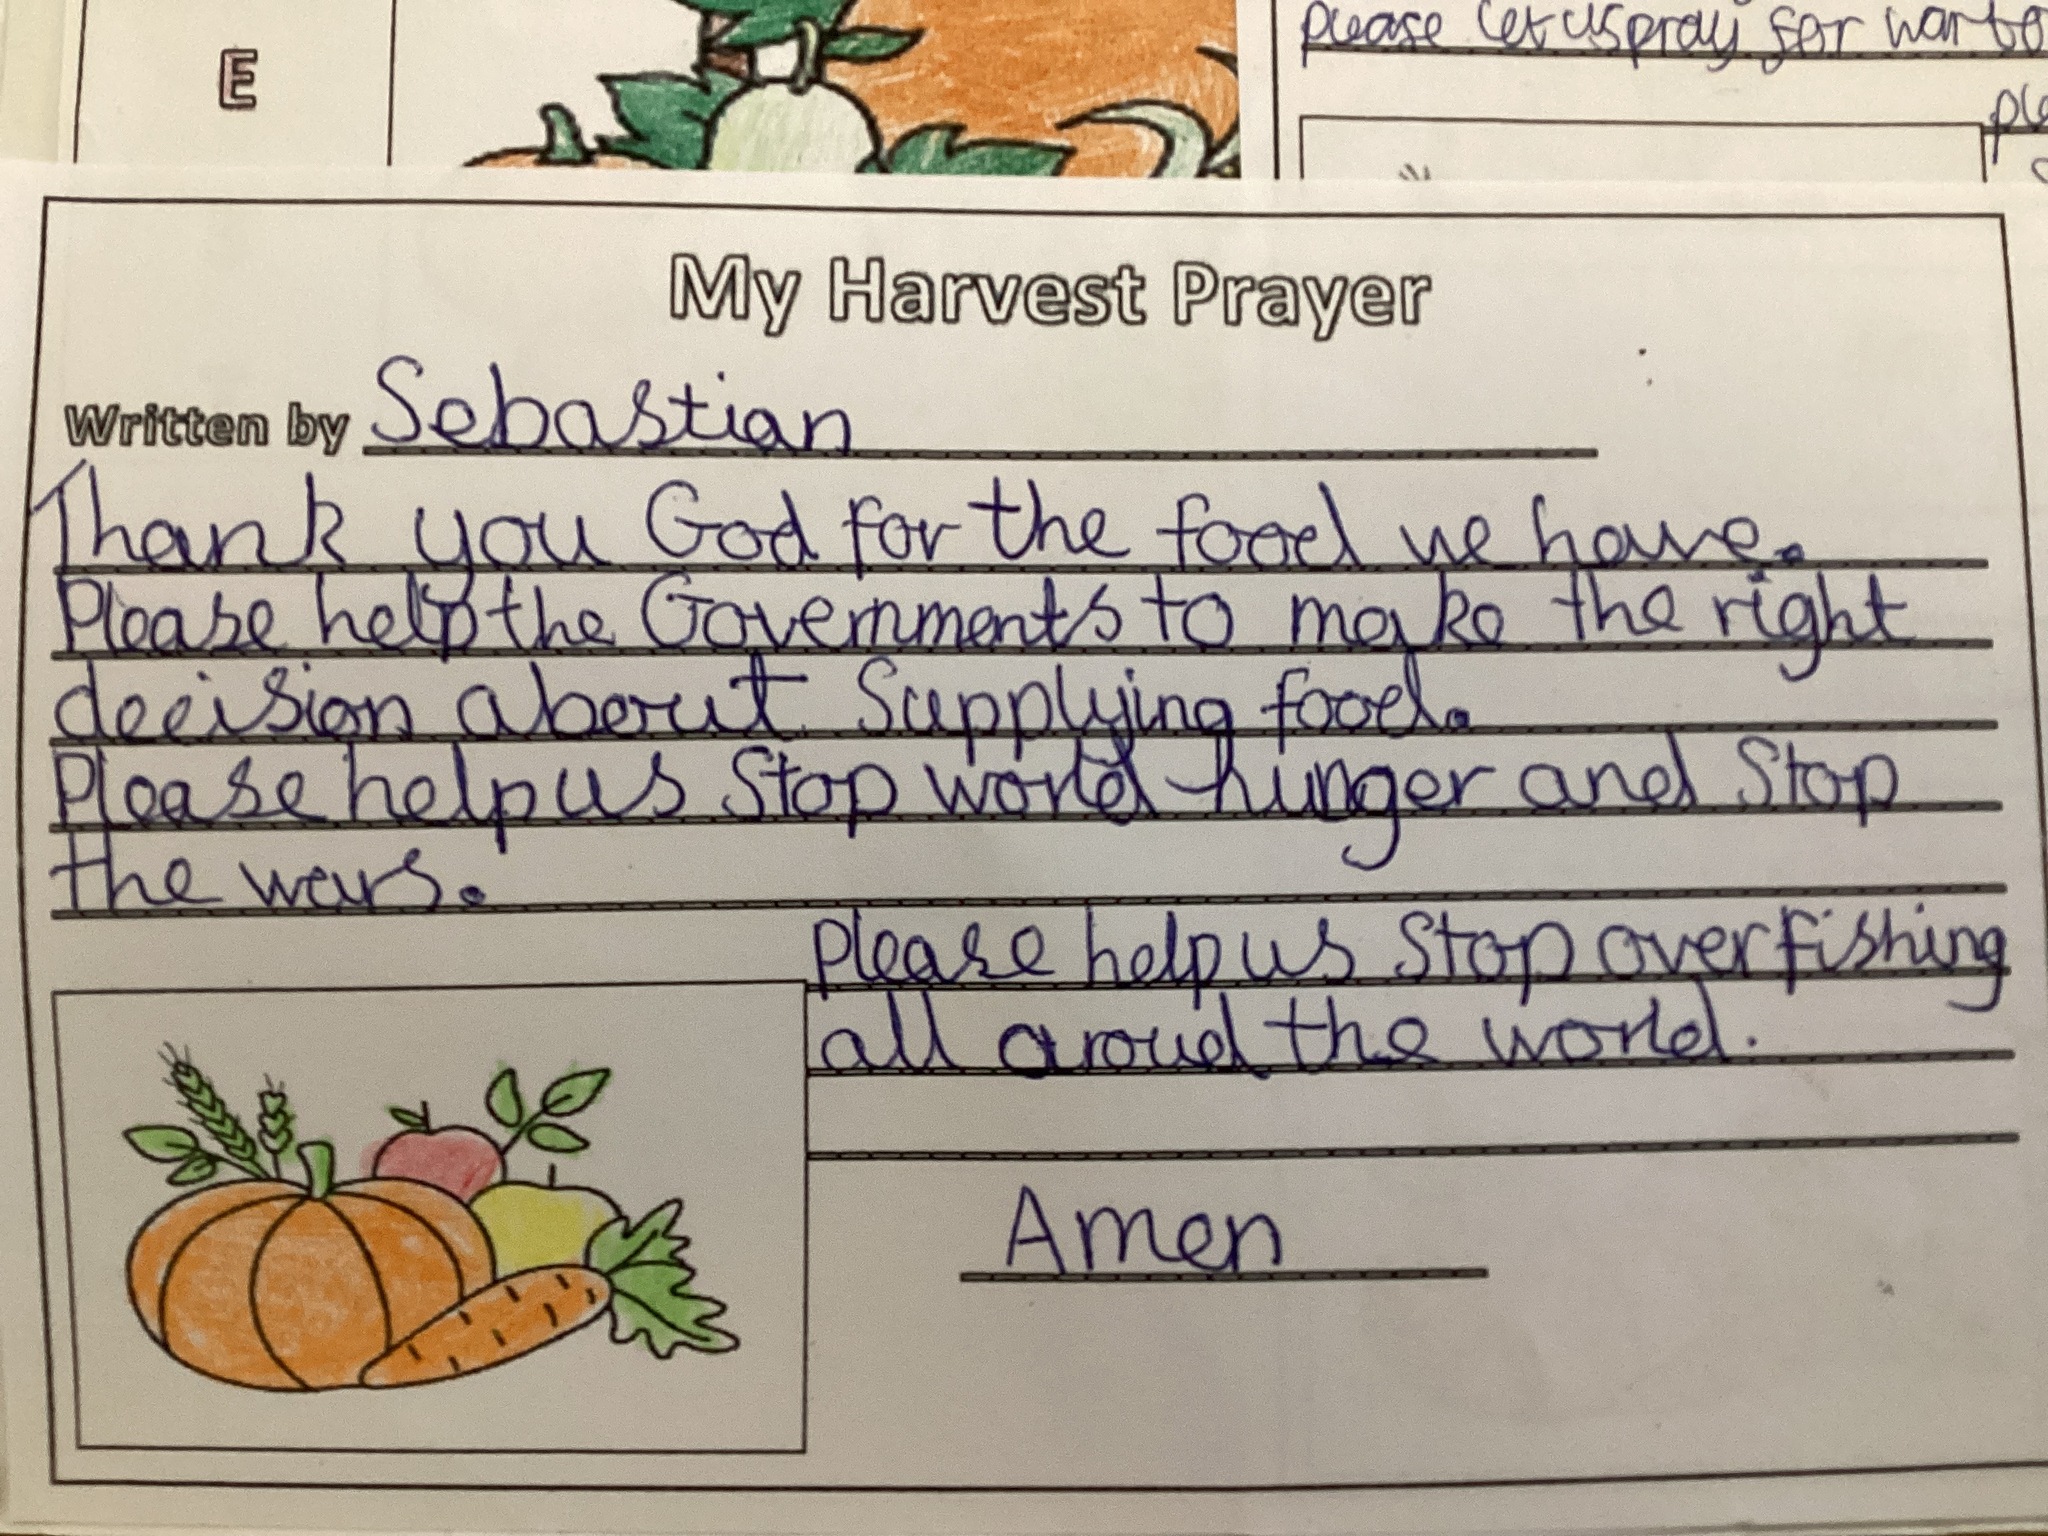 E
please let us pray for war to
ple
My Harvest Prayer
Written by Sebastian
Thank you God for the food we have.
Please help the Governments to make the right
decision about Supplying food.
Please help us Stop world hunger and Stop
the wars.
please help us Stop over fishing
all aroud the world.
Amen